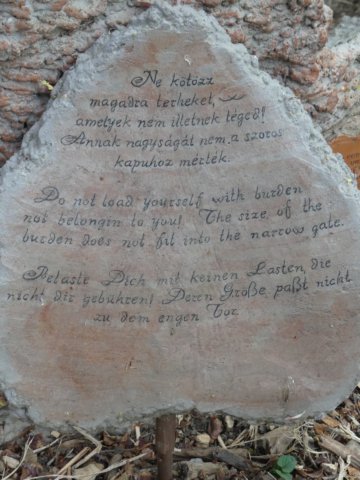 Ne kötözz
magadra terheket,
amelyek nem illetnek téged!
Annak nagyságát nem a szoros
kapuhoz mérték.
Do not load yourself with burden
not belongin to you! The size of the
burden does not fit into the narrow gate.
Belaste Dich mit keinen Lasten, die
nicht dir gebühren! Deren Größe paßt nicht
zu dem engen Tor.